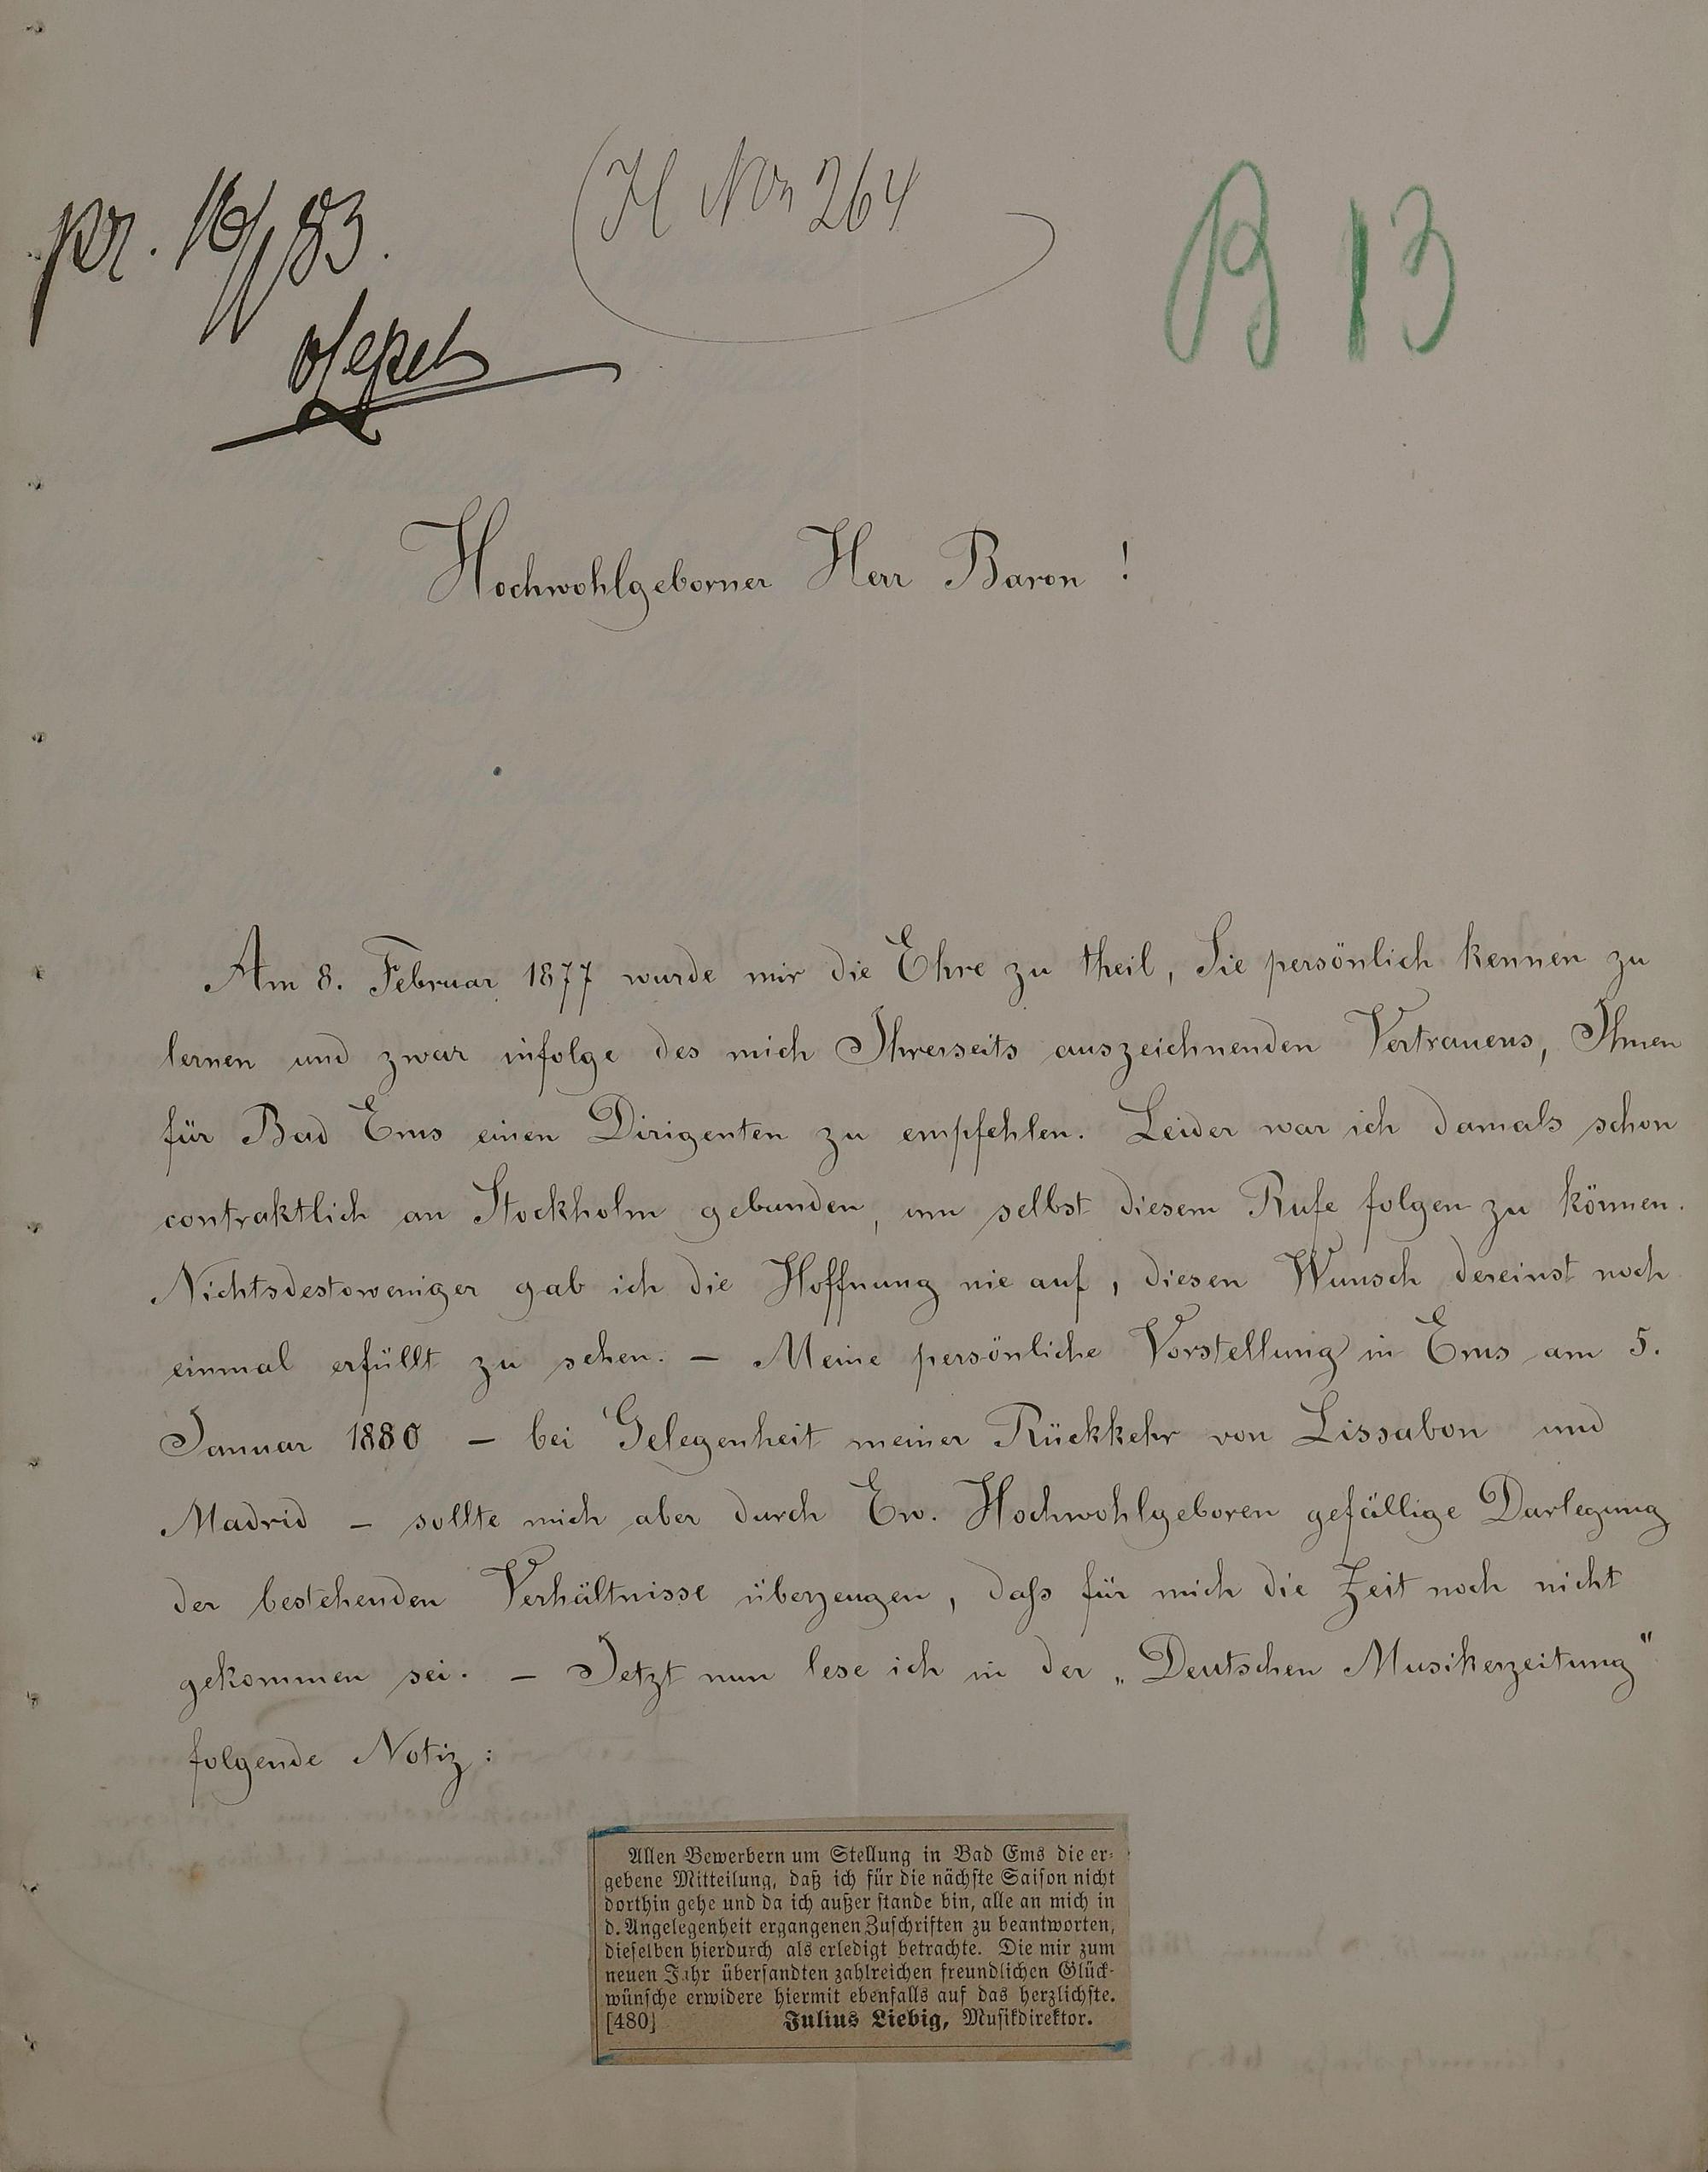 pr. 16/1 83.
(H Nro 264
B 13
Hochwohlgeborner Herr Baron !
Am 8. Februar 1877 wurde mir die Ehre zu theil, Sie persönlich kennen zu
lernen und zwar infolge des mich Ihrerseits auszeichnenden Vertrauens, Ihnen
für Bad Ems einen Dirigenten zu empfehlen. Leider war ich damals schon
contraktlich an Stockholm gebunden, um selbst diesem Rufe folgen zu können.
Nichtsdestoweniger gab ich die Hoffnung nie auf, diesen Wunsch dereinst noch
einmal erfüllt zu sehen. – Meine persönliche Vorstellung in Ems am 5.
Januar 1880 – bei Gelegenheit meiner Rückkehr von Lissabon und
Madrid – sollte mich aber durch Ew. Hochwohlgeboren gefällige Darlegung
der bestehenden Verhältnisse überzeugen, daß für mich die Zeit noch nicht
gekommen sei. – Jetzt nun lese ich in der „Deutschen Musikerzeitung"
folgende Notiz:
Allen Bewerbern um Stellung in Bad Ems die er-
gebene Mitteilung, daß ich für die nächste Saison nicht
dorthin gehe und da ich außer stande bin, alle an mich in
d. Angelegenheit ergangenen Zuschriften zu beantworten,
dieselben hierdurch als erledigt betrachte. Die mir zum
neuen Jahr übersandten zahlreichen freundlichen Glück-
wünsche erwidere hiermit ebenfalls auf das herzlichste.
[480] Julius Liebig, Musikdirektor.